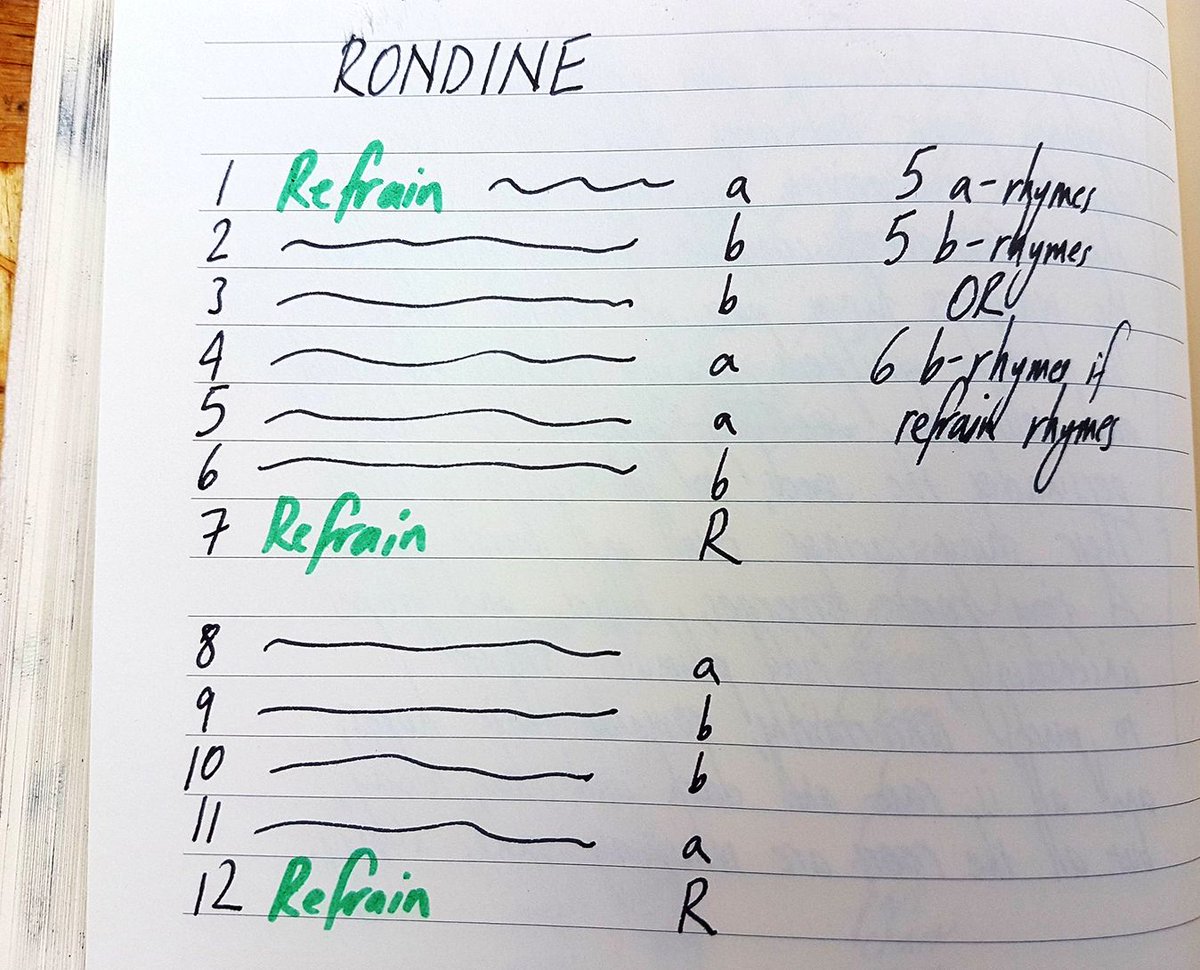 RONDINE
1 Refrain a 5 a-rhymes
2 b 5 b-rhymes
3 b OR
4 a 6 b-rhymes if
5 a refrain rhymes
6 b
7 Refrain R
8 a
9 b
10 b
11 a
12 Refrain R